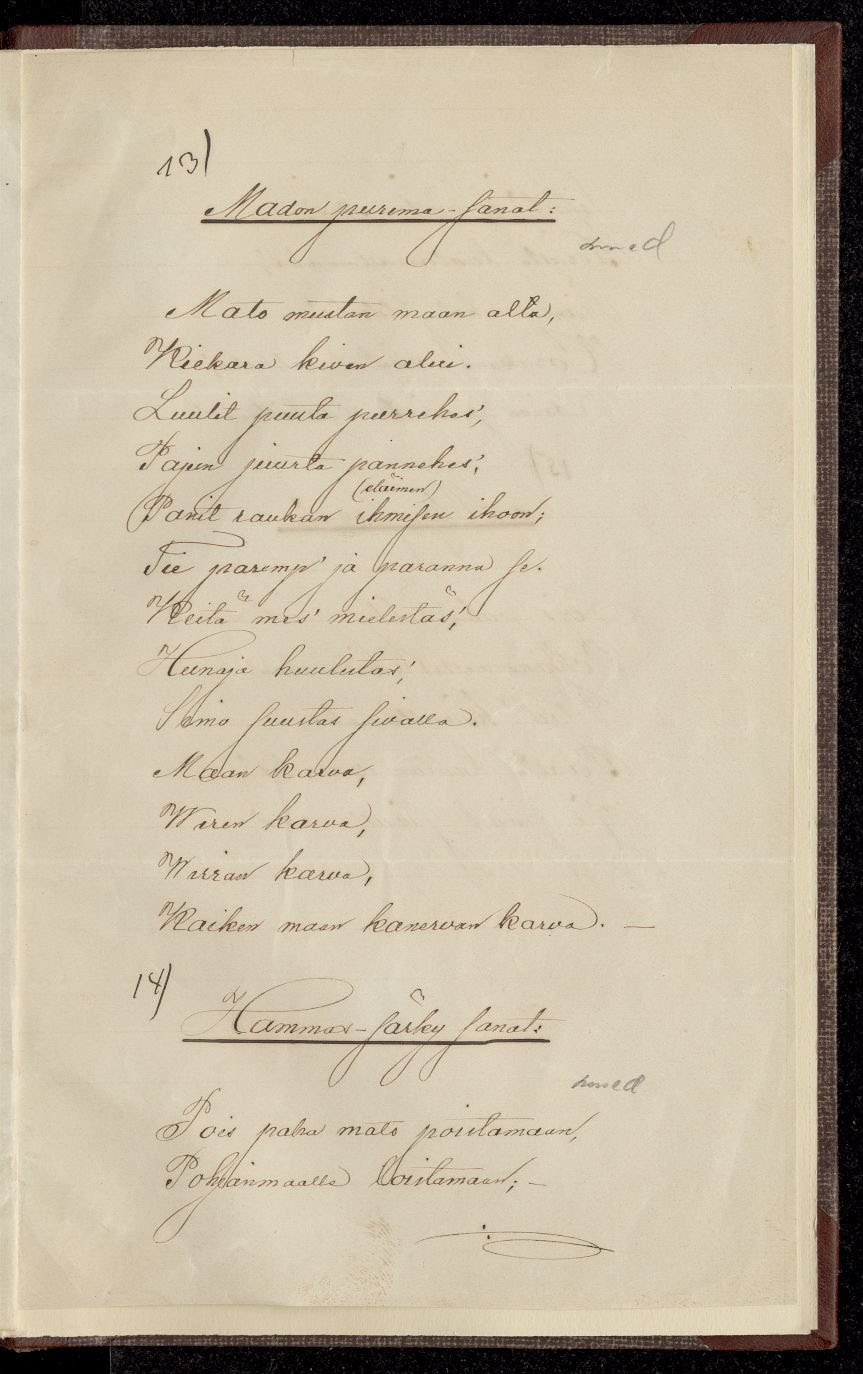 13)
Madon purema-sanat:
Mato mustan maan alta,
Kiekara kiven alui.
Luulit puuta purrehes',
Pajun juurta pannehes',
(eläimen)
Panit raukan ihmisen ihoon;
Tee paremp' ja paranna se.
Keitä mes' mielestäs',
Hunaja huulistas',
Sima suustas sivalla.
Maan karva,
Weren karva,
Wirran karva,
Kaiken maan kanervan karva. —
14)
Hammas-särky sanat:
Pois paha mato poistamaan,
Pohjanmaalle loistamaan; —